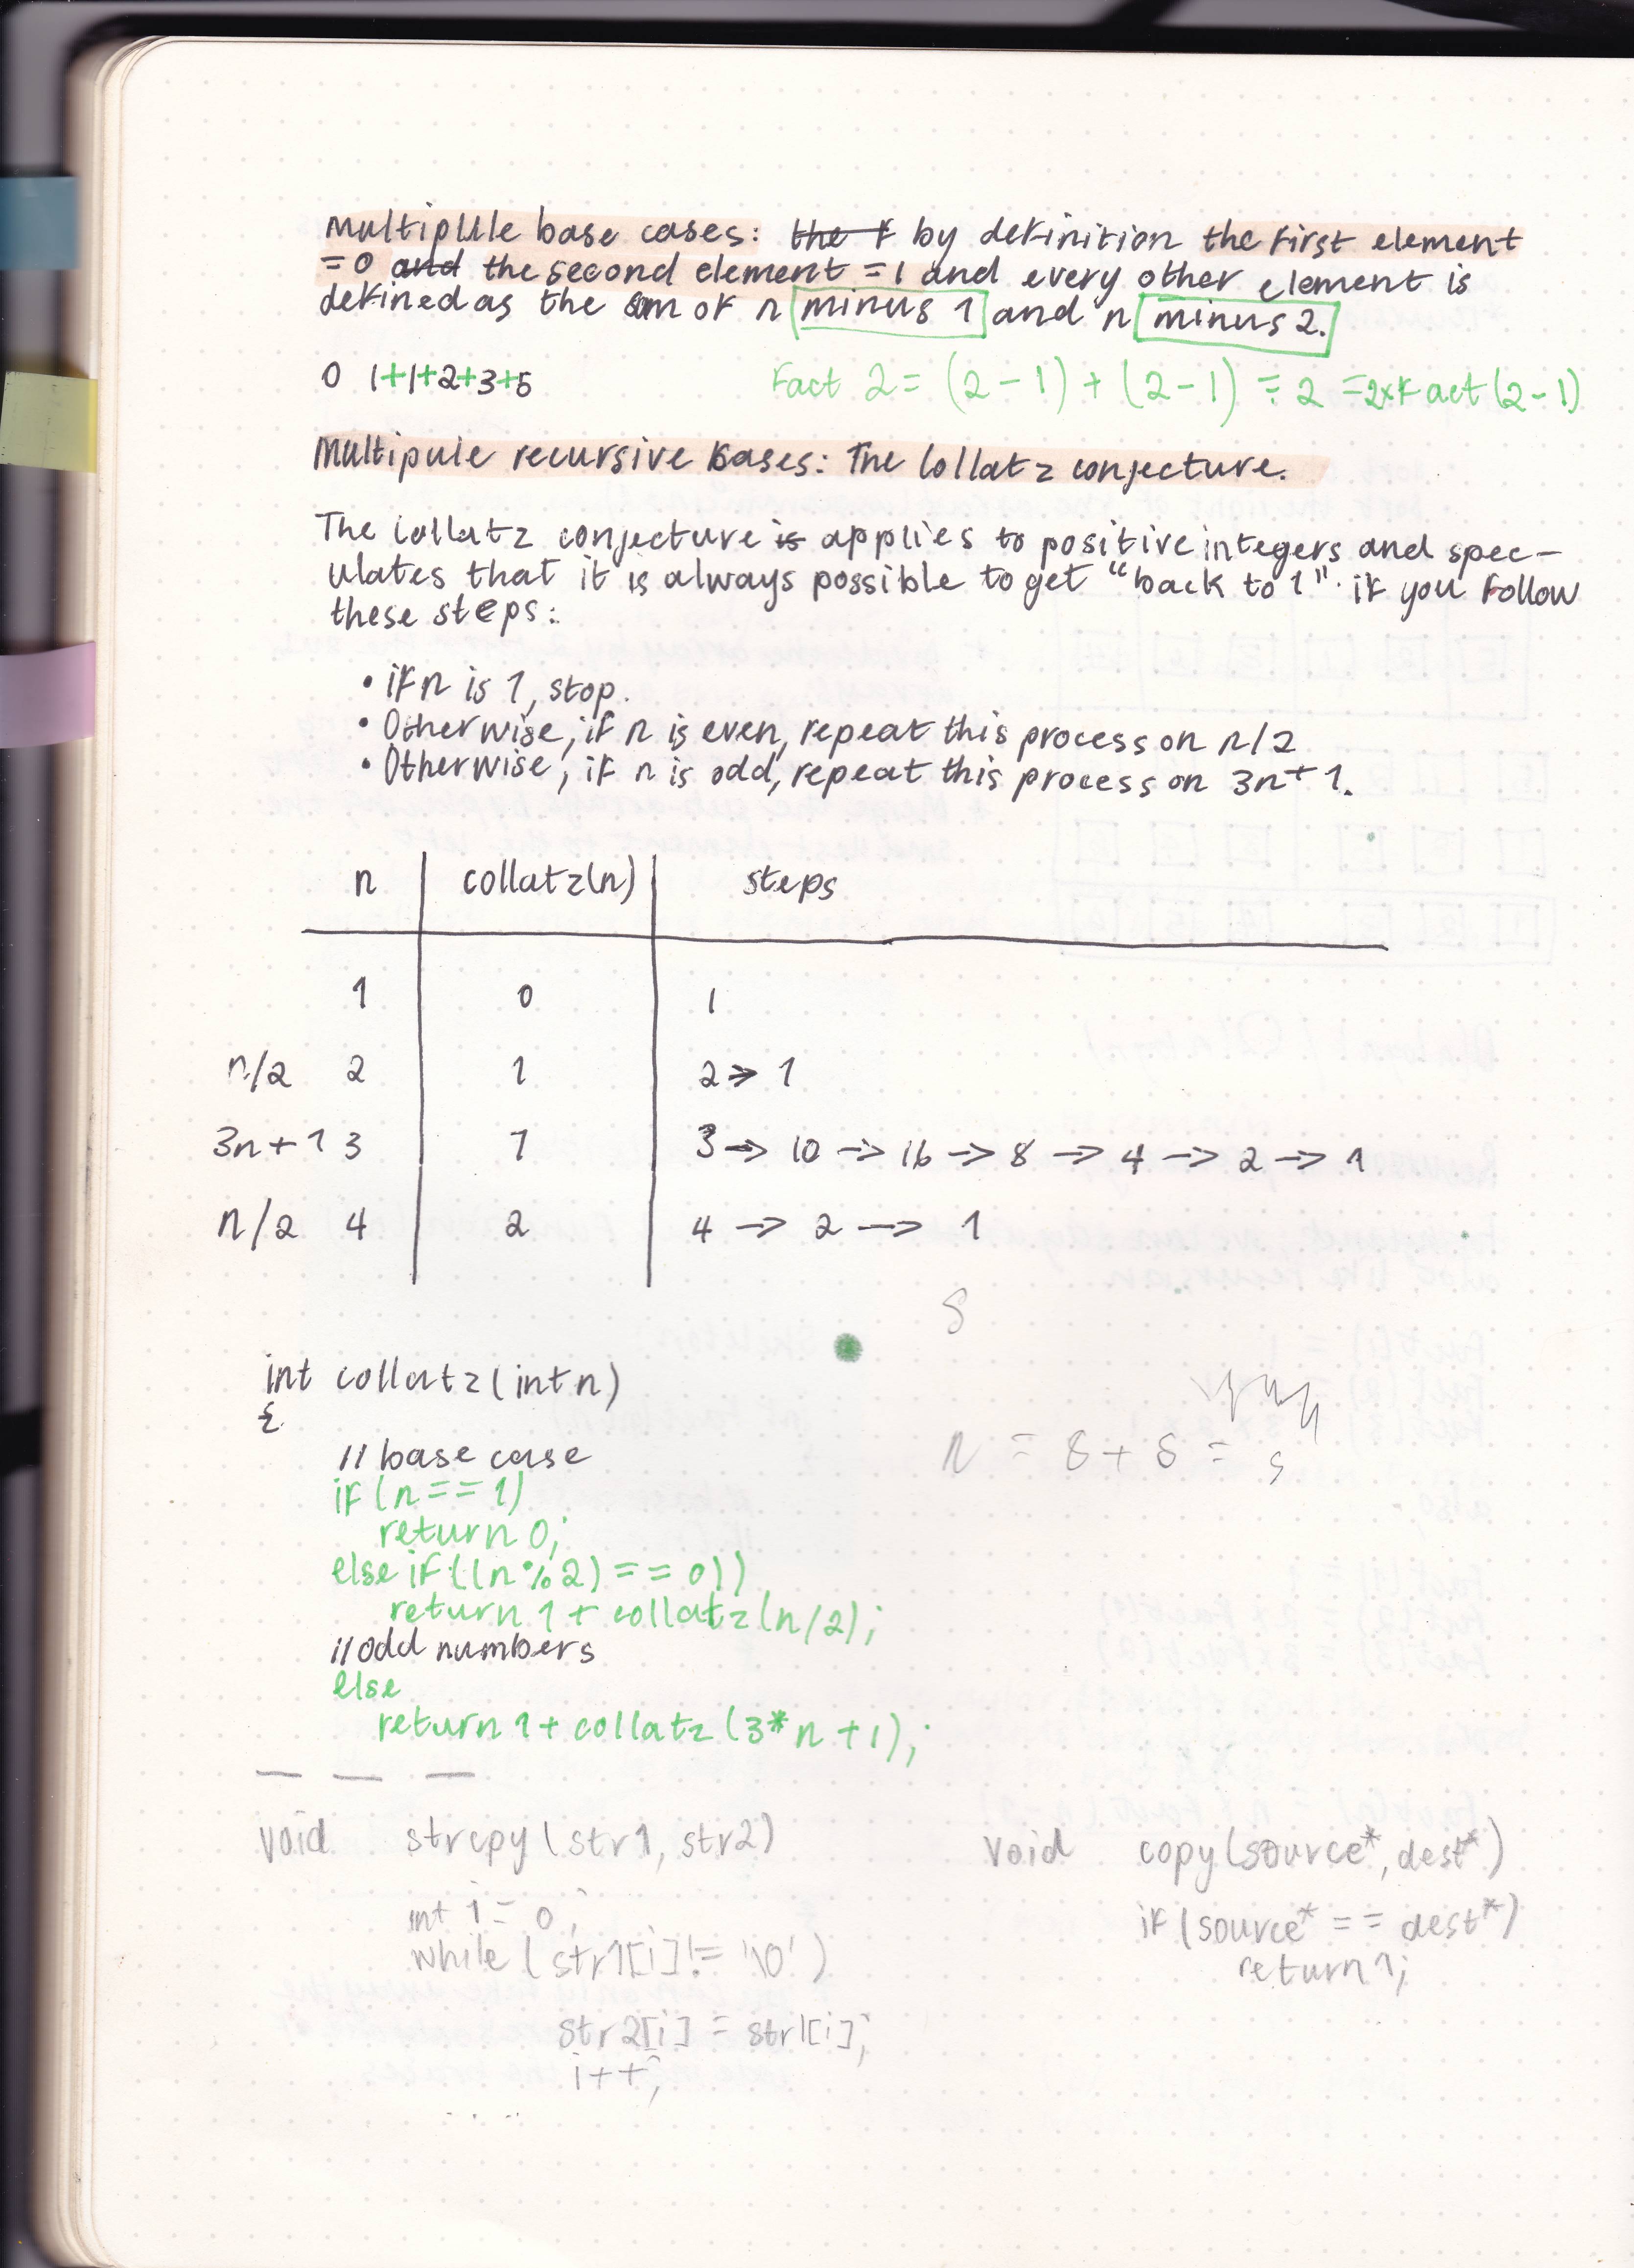 Multiplule base cases: the f by definition the first element
= 0 and the second element = 1 and every other element is
defined as the sum of n minus 1 and n minus 2.
0 1+1+2+3+5
Fact 2 = (2-1) + (2-1) = 2 = 2xFact(2-1)
Multipule recursive cases: The Collatz conjecture.
The Collatz conjecture is applies to positive integers and spec-
ulates that it is always possible to get "back to 1" if you follow
these steps:
• if n is 1, stop.
• Otherwise, if n is even, repeat this process on n/2
• Otherwise, if n is odd, repeat this process on 3n+1.
n collatz(n) steps
1 0 1
n/2 2 1 2 → 1
3n+1 3 7 3 → 10 → 16 → 8 → 4 → 2 → 1
n/2 4 2 4 → 2 → 1
8
int collatz(int n)
{
// base case
if (n == 1)
return 0;
else if ((n % 2) == 0))
return 1 + collatz(n/2);
// odd numbers
else
return 1 + collatz(3*n+1);
n = 8 + 8 =
void strcpy(str1, str2)
int i = 0;
while (str1[i] != '\0')
str2[i] = str1[i];
i++;
void copy(source*, dest*)
if (source* == dest*)
return 1;